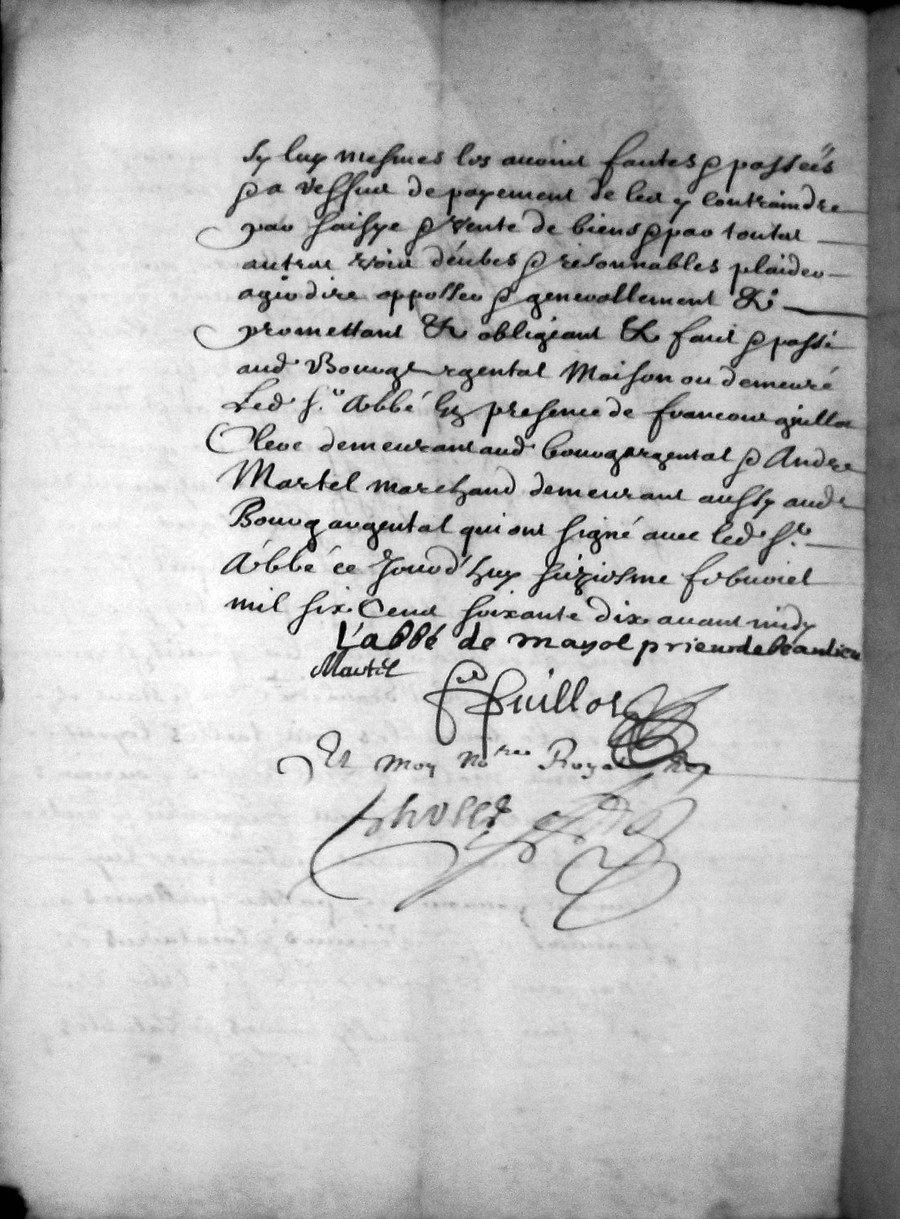 sy luy mesmes les avoint faites & passeés
& a reffus de payement de les y contraindre
par saisye & vente de biens & par toutes
autres voies deubes & resonnables plaider
agir dire opposser & generallement &c
promettant &c obligeant &c fait & passé
aud Bourgargental Maison ou demeure
Led sr Abbé En presence de francois guillot
Clerc demeurant aud bourgargental & Andre
Martel marchand demeurant aussy aud
Bourgargental qui ont signé avec led sr
Abbé ce Jourd'huy siziesme febvrier
mil six Cent soixante dix avant midy
L'abbé de mayol prieur de beaulieu
Martel
Guillot
Et Moy Notre Royal